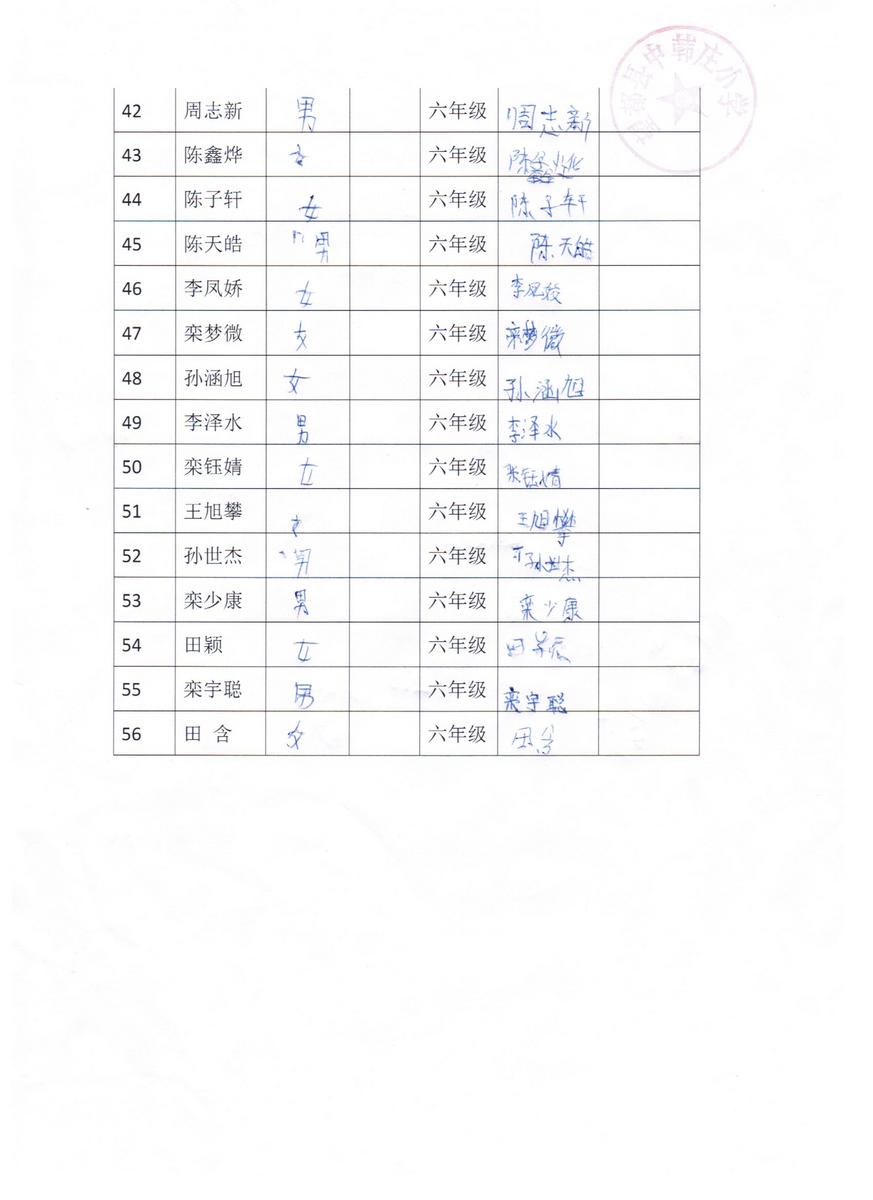 望都县中韩庄小学
42 周志新 男 六年级 周志新
43 陈鑫烨 女 六年级 陈鑫烨
44 陈子轩 女 六年级 陈子轩
45 陈天皓 男 六年级 陈天皓
46 李凤娇 女 六年级 李凤姣
47 栾梦微 女 六年级 栾梦微
48 孙涵旭 女 六年级 孙涵旭
49 李泽水 男 六年级 李泽水
50 栾钰婧 女 六年级 栾钰婧
51 王旭攀 女 六年级 王旭攀
52 孙世杰 男 六年级 孙世杰
53 栾少康 男 六年级 栾少康
54 田颖 女 六年级 田颖
55 栾宇聪 男 六年级 栾宇聪
56 田 含 女 六年级 田含